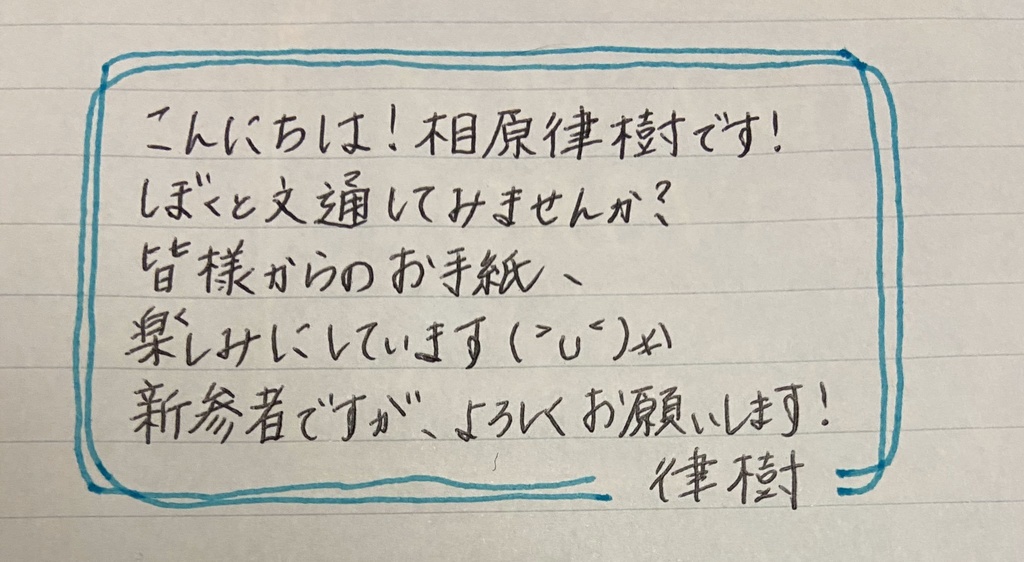 こんにちは!相原律樹です!
ぼくと文通してみませんか?
皆様からのお手紙、
楽しみにしています(˃∪˂)
新参者ですが、よろしくお願いします!
律樹